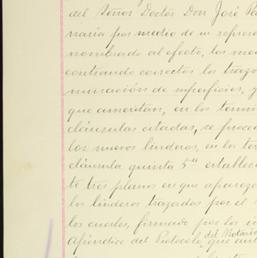 del Señor Doctor Don José
naria por medio de su represen
nombrado al efecto, los
contrando correctos los trazo
nuración de superficies, y
que ameritan, en los térmi
cláusulas citadas, se proced
los nuevos linderos, en los tér
cláusula quinta 5ª establece
te tres planos en que aparezca
los linderos trazados por el
los cuales, firmado por los in
del Notario
Apéndice del Protocolo, que aut